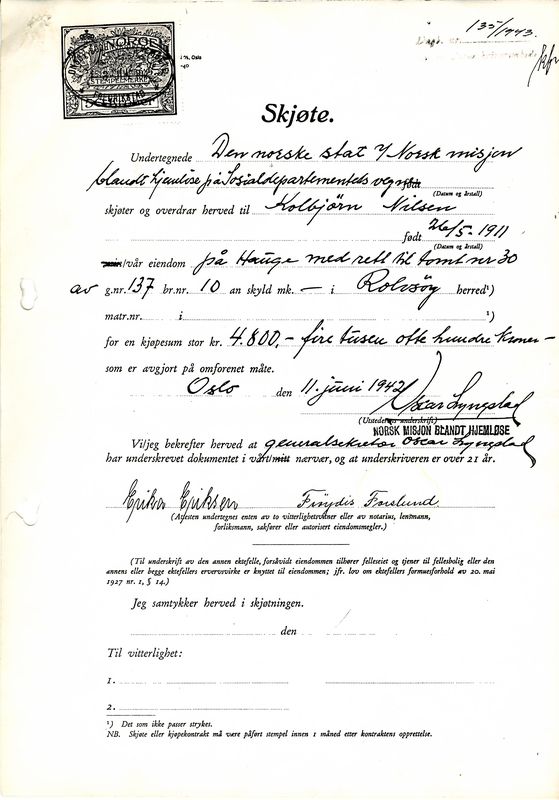 135/1943.
Dagb. nr.
NORGE
STEMPELMERKE
Oslo
Skjøte.
Undertegnede Den norske stat v/ Norsk misjon
blandt hjemløse på Sosialdepartementets vegne
(Datum og årstall)
skjøter og overdrar herved til Kolbjörn Nilsen
født 26/5-1911
(Datum og årstall)
min/vår eiendom på Hauge med rett til tomt nr 30
av g.nr. 137 br.nr. 10 an skyld mk. — i Rolvsöy herred¹)
matr.nr. i ¹)
for en kjøpesum stor kr. 4.800,- fire tusen otte hundre kroner -
som er avgjort på omforenet måte.
Oslo den 11. juni 1942
Oscar Lyngstad
(Utstederens underskrift)
NORSK MISJON BLANDT HJEMLØSE
Vi/jeg bekrefter herved at generalsekretær Oscar Lyngstad
har underskrevet dokumentet i vårt/mitt nærvær, og at underskriveren er over 21 år.
Erika Eriksen Frøydis Forslund
(Attesten undertegnes enten av to vitterlighetsvitner eller av notarius, lensmann,
forliksmann, sakfører eller autorisert eiendomsmegler.)
(Til underskrift av den annen ektefelle, forsåvidt eiendommen tilhører felleseiet og tjener til fellesbolig eller den
annens eller begge ektefellers ervervsvirke er knyttet til eiendommen; jfr. lov om ektefellers formuesforhold av 20. mai
1927 nr. 1, § 14.)
Jeg samtykker herved i skjøtningen.
den
Til vitterlighet:
1.
2.
¹) Det som ikke passer strykes.
NB. Skjøte eller kjøpekontrakt må være påført stempel innen 1 måned etter kontraktens opprettelse.